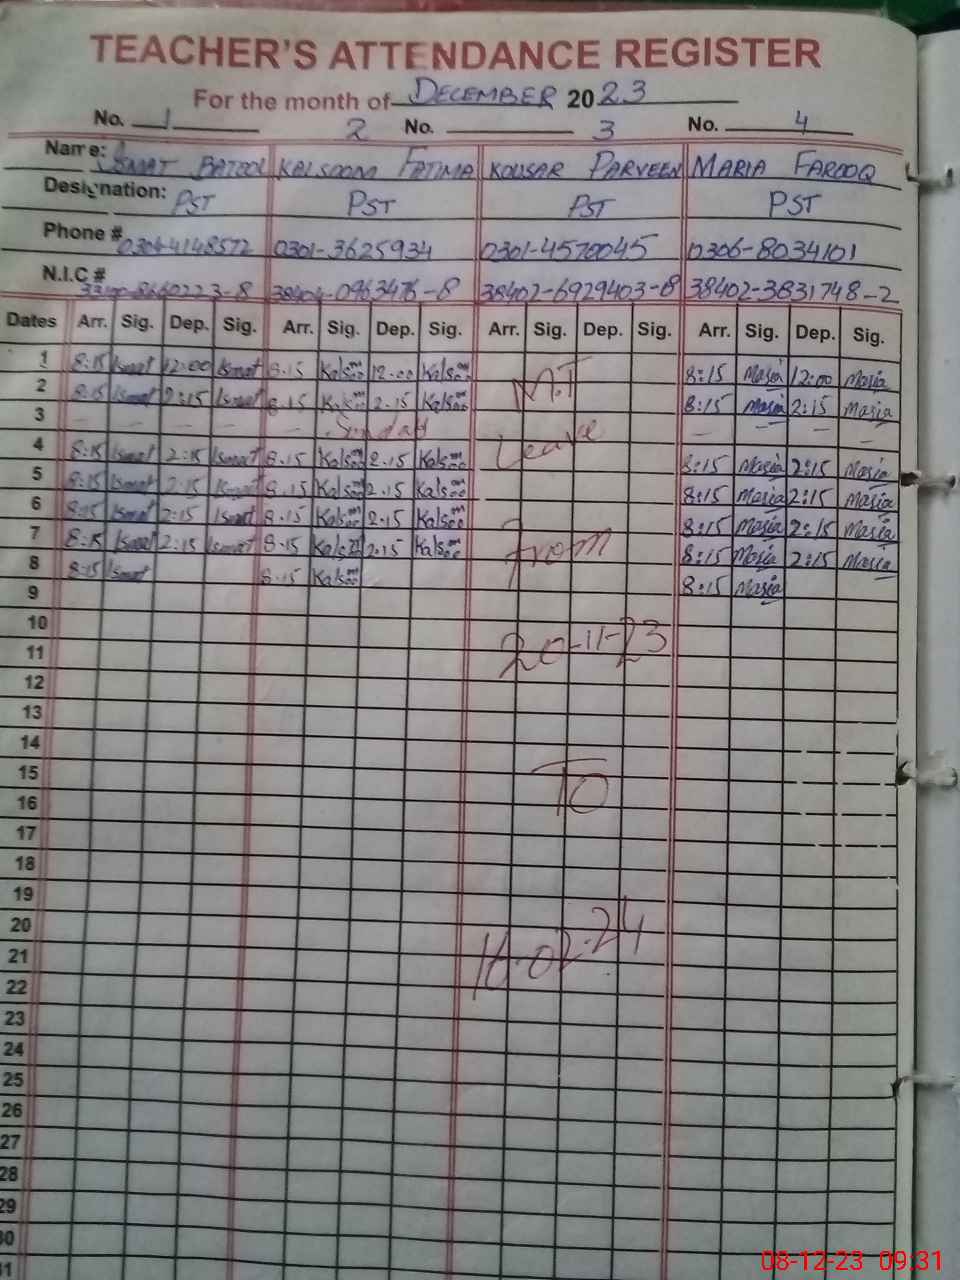 TEACHER'S ATTENDANCE REGISTER
For the month of DECEMBER 2023
No. 1 2 No. 3 No. 4
Name: ISMAT BATOOL KALSOOM FATIMA KOUSAR PARVEEN MARIA FAROOQ
Designation: PST PST PST PST
Phone # 0306-4148572 0301-3625934 0301-4570045 0306-8034101
N.I.C # 8660223-8 38404-0963476-8 38402-6929403-8 38402-3831748-2
Dates Arr. Sig. Dep. Sig. Arr. Sig. Dep. Sig. Arr. Sig. Dep. Sig. Arr. Sig. Dep. Sig.
1 8:15 Ismat 12:00 Ismat 8.15 Kalsoom 12.00 Kalsoom M.T 8:15 Maria 12:00 Maria
2 8:15 Ismat 2:15 Ismat 8.15 Kalsoom 2.15 Kalsoom 8:15 Maria 2:15 Maria
3 — — — — — Sunday Leave — —
4 8:15 Ismat 2:15 Ismat 8.15 Kalsoom 2.15 Kalsoom 8:15 Maria 2:15 Maria
5 8:15 Ismat 2:15 Ismat 8.15 Kalsoom 2.15 Kalsoom 8:15 Maria 2:15 Maria
6 8:15 Ismat 2:15 Ismat 8.15 Kalsoom 2.15 Kalsoom 8:15 Maria 2:15 Maria
7 8:15 Ismat 2:15 Ismat 8.15 Kalsoom 2.15 Kalsoom From 8:15 Maria 2:15 Maria
8 8:15 Ismat 8.15 Kalsoom 8:15 Maria
9
10
11 20-11-23
12
13
14
15
16 To
17
18
19
20
21 16-02-24
22
23
24
25
26
27
28
29
30
31
08-12-23 09:31